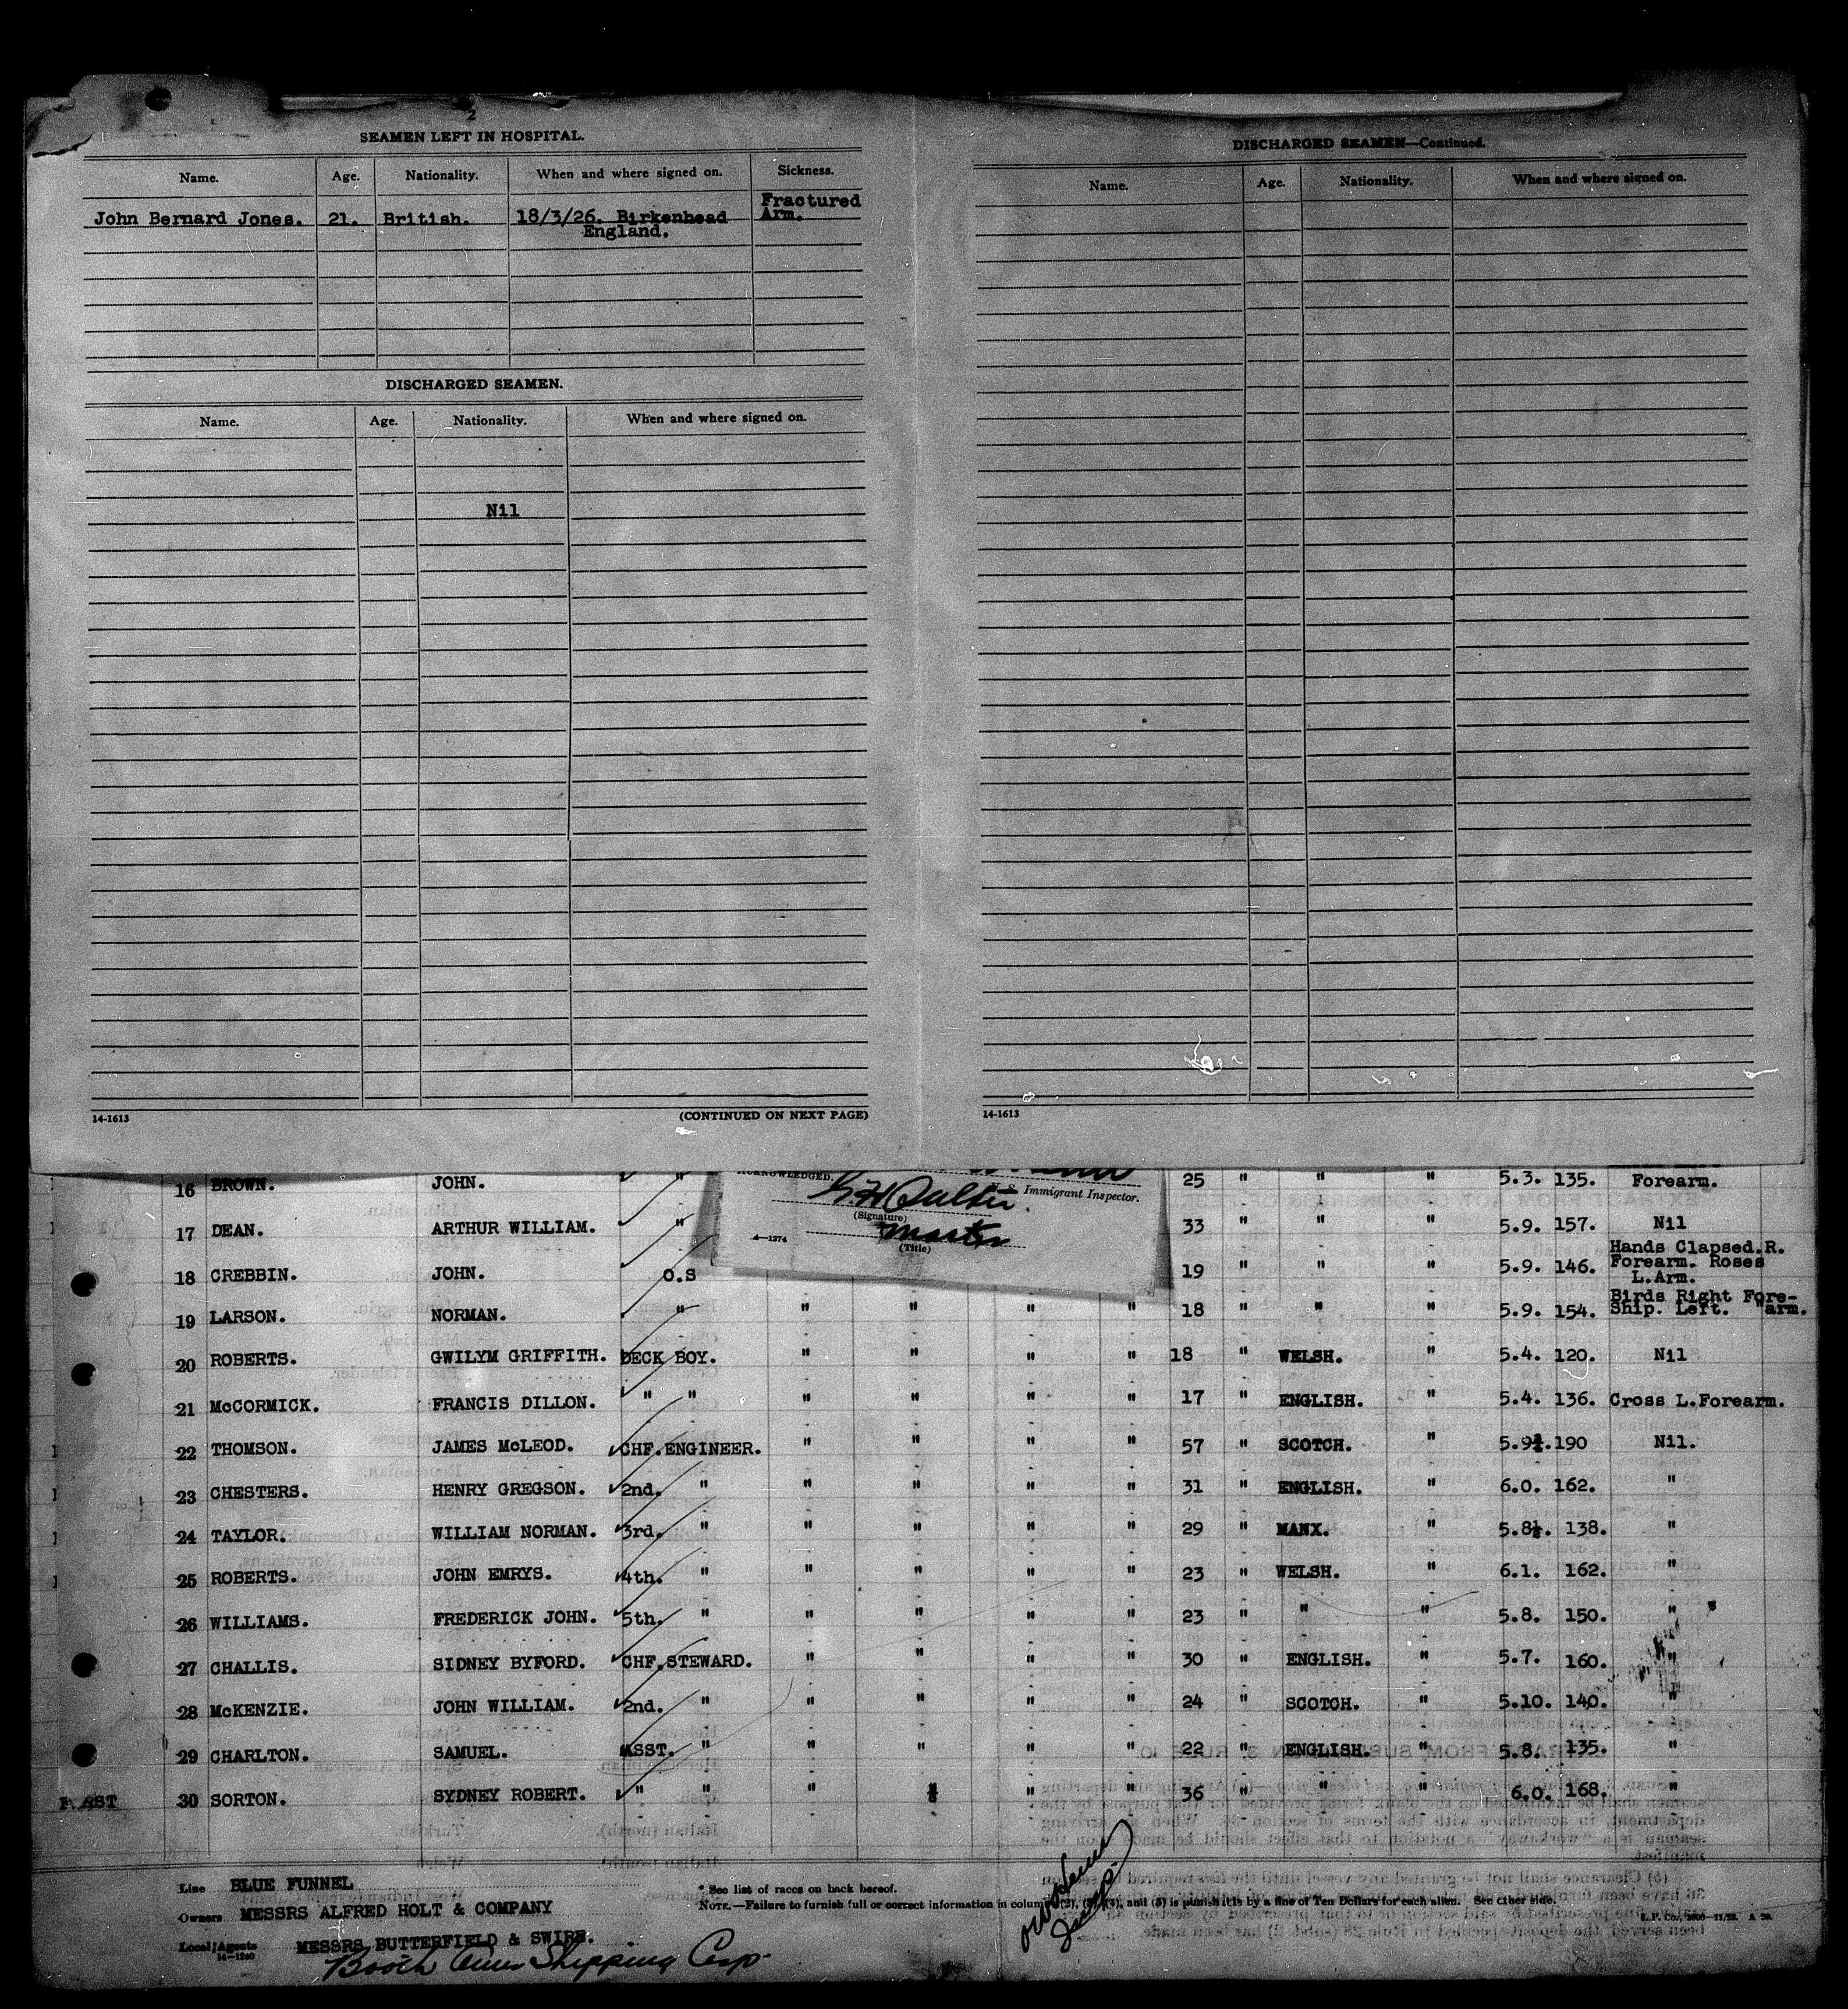 2
SEAMEN LEFT IN HOSPITAL.
Name. Age. Nationality. When and where signed on. Sickness.
John Bernard Jones. 21. British. 18/3/26. Birkenhead England. Fractured Arm.
DISCHARGED SEAMEN.
Name. Age. Nationality. When and where signed on.
Nil
14-1613 (CONTINUED ON NEXT PAGE)
DISCHARGED SEAMEN—Continued.
Name. Age. Nationality. When and where signed on.
14-1613
ACKNOWLEDGED.
Immigrant Inspector.
(Signature)
Master
4—1274 (Title)
16 BROWN. JOHN. " 25 " " " 5.3. 135. Forearm.
17 DEAN. ARTHUR WILLIAM. " 33 " " " 5.9. 157. Nil
18 CREBBIN. JOHN. O.S 19 " " " 5.9. 146. Hands Clapsed.R. Forearm. Roses L.Arm.
19 LARSON. NORMAN. " " " " " 18 " " " 5.9. 154. Birds Right Fore-arm. Ship. Left.
20 ROBERTS. GWILYM GRIFFITH. DECK BOY. " " " " 18 " WELSH. " 5.4. 120. Nil
21 McCORMICK. FRANCIS DILLON. " " " " " " 17 " ENGLISH. " 5.4. 136. Cross L.Forearm.
22 THOMSON. JAMES McLEOD. CHF.ENGINEER. " " " " 57 " SCOTCH. " 5.9¾.190 Nil.
23 CHESTERS. HENRY GREGSON. 2nd. " " " " " 31 " ENGLISH. " 6.0. 162. "
24 TAYLOR. WILLIAM NORMAN. 3rd. " " " " " 29 " MANX. " 5.8½. 138. "
25 ROBERTS. JOHN EMRYS. 4th. " " " " " 23 " WELSH. " 6.1. 162. "
26 WILLIAMS. FREDERICK JOHN. 5th. " " " " " 23 " " " 5.8. 150. "
27 CHALLIS. SIDNEY BYFORD. CHF.STEWARD. " " " " 30 " ENGLISH. " 5.7. 160. "
28 McKENZIE. JOHN WILLIAM. 2nd. " " " " " 24 " SCOTCH. " 5.10. 140. "
29 CHARLTON. SAMUEL. ASST. " " " " " 22 " ENGLISH. " 5.8. 135. "
30 SORTON. SYDNEY ROBERT. " " " " " " 36 " " " 6.0. 168. "
Line BLUE FUNNEL
Owners MESSRS ALFRED HOLT & COMPANY
Local Agents MESSRS BUTTERFIELD & SWIRE.
14—1240
Shipping Corp
* See list of races on back hereof.
NOTE.—Failure to furnish full or correct information in columns (2), (3), (4), and (5) is punishable by a fine of Ten Dollars for each alien. See other side.